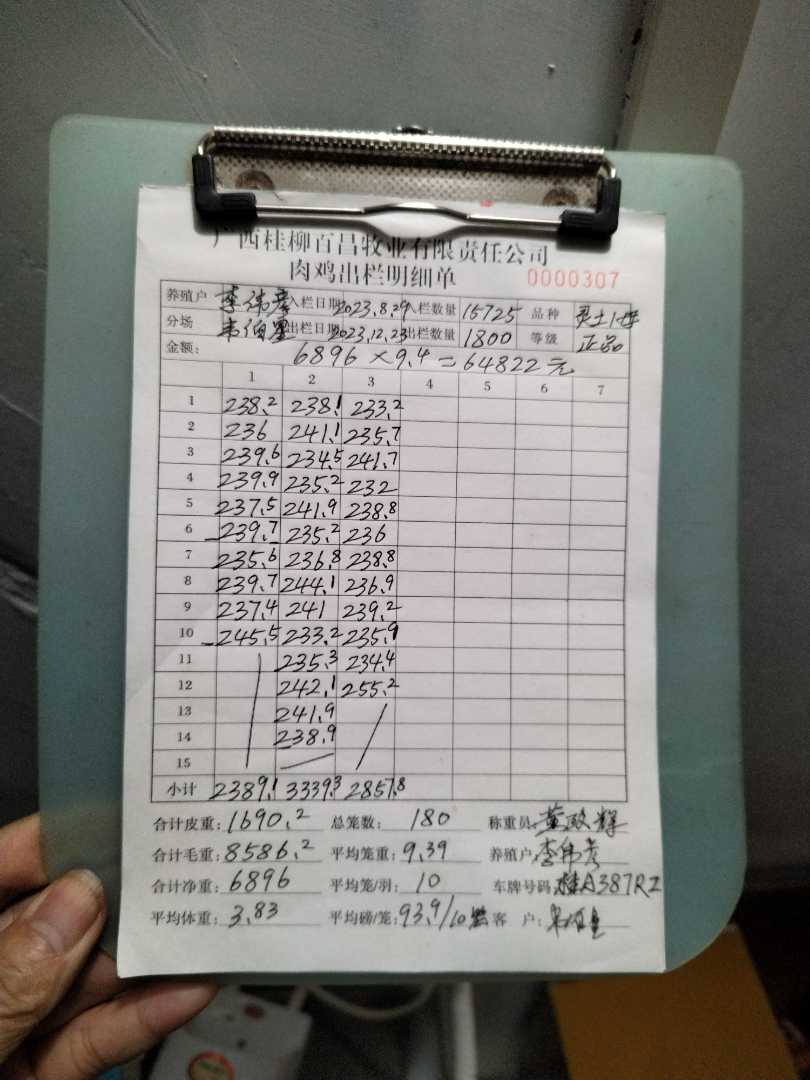 广西桂柳百昌牧业有限责任公司
肉鸡出栏明细单 0000307
养殖户 李伟彦 入栏日期 2023.8.29 入栏数量 15725 品种 灵土1母
分场 韦伯星 出栏日期 2023.12.23 出栏数量 1800 等级 正品
金额: 6896×9.4=64822元
1 2 3 4 5 6 7
1 238.2 238.1 233.2
2 236 241.1 235.7
3 239.6 234.5 241.7
4 239.9 235.2 232
5 237.5 241.9 238.8
6 239.7 235.2 236
7 235.6 236.8 238.8
8 239.7 244.1 236.9
9 237.4 241 239.2
10 245.5 233.2 235.9
11 235.3 234.4
12 242.1 255.2
13 241.9
14 238.9
15
小计 2389.1 3339.3 2857.8
合计皮重: 1690.2 总笼数: 180 称重员: 黄 辉
合计毛重: 8586.2 平均笼重: 9.39 养殖户 李伟彦
合计净重: 6896 平均笼/羽: 10 车牌号码 桂A387RZ
平均体重: 3.83 平均磅/笼: 93.9/10 客 户: